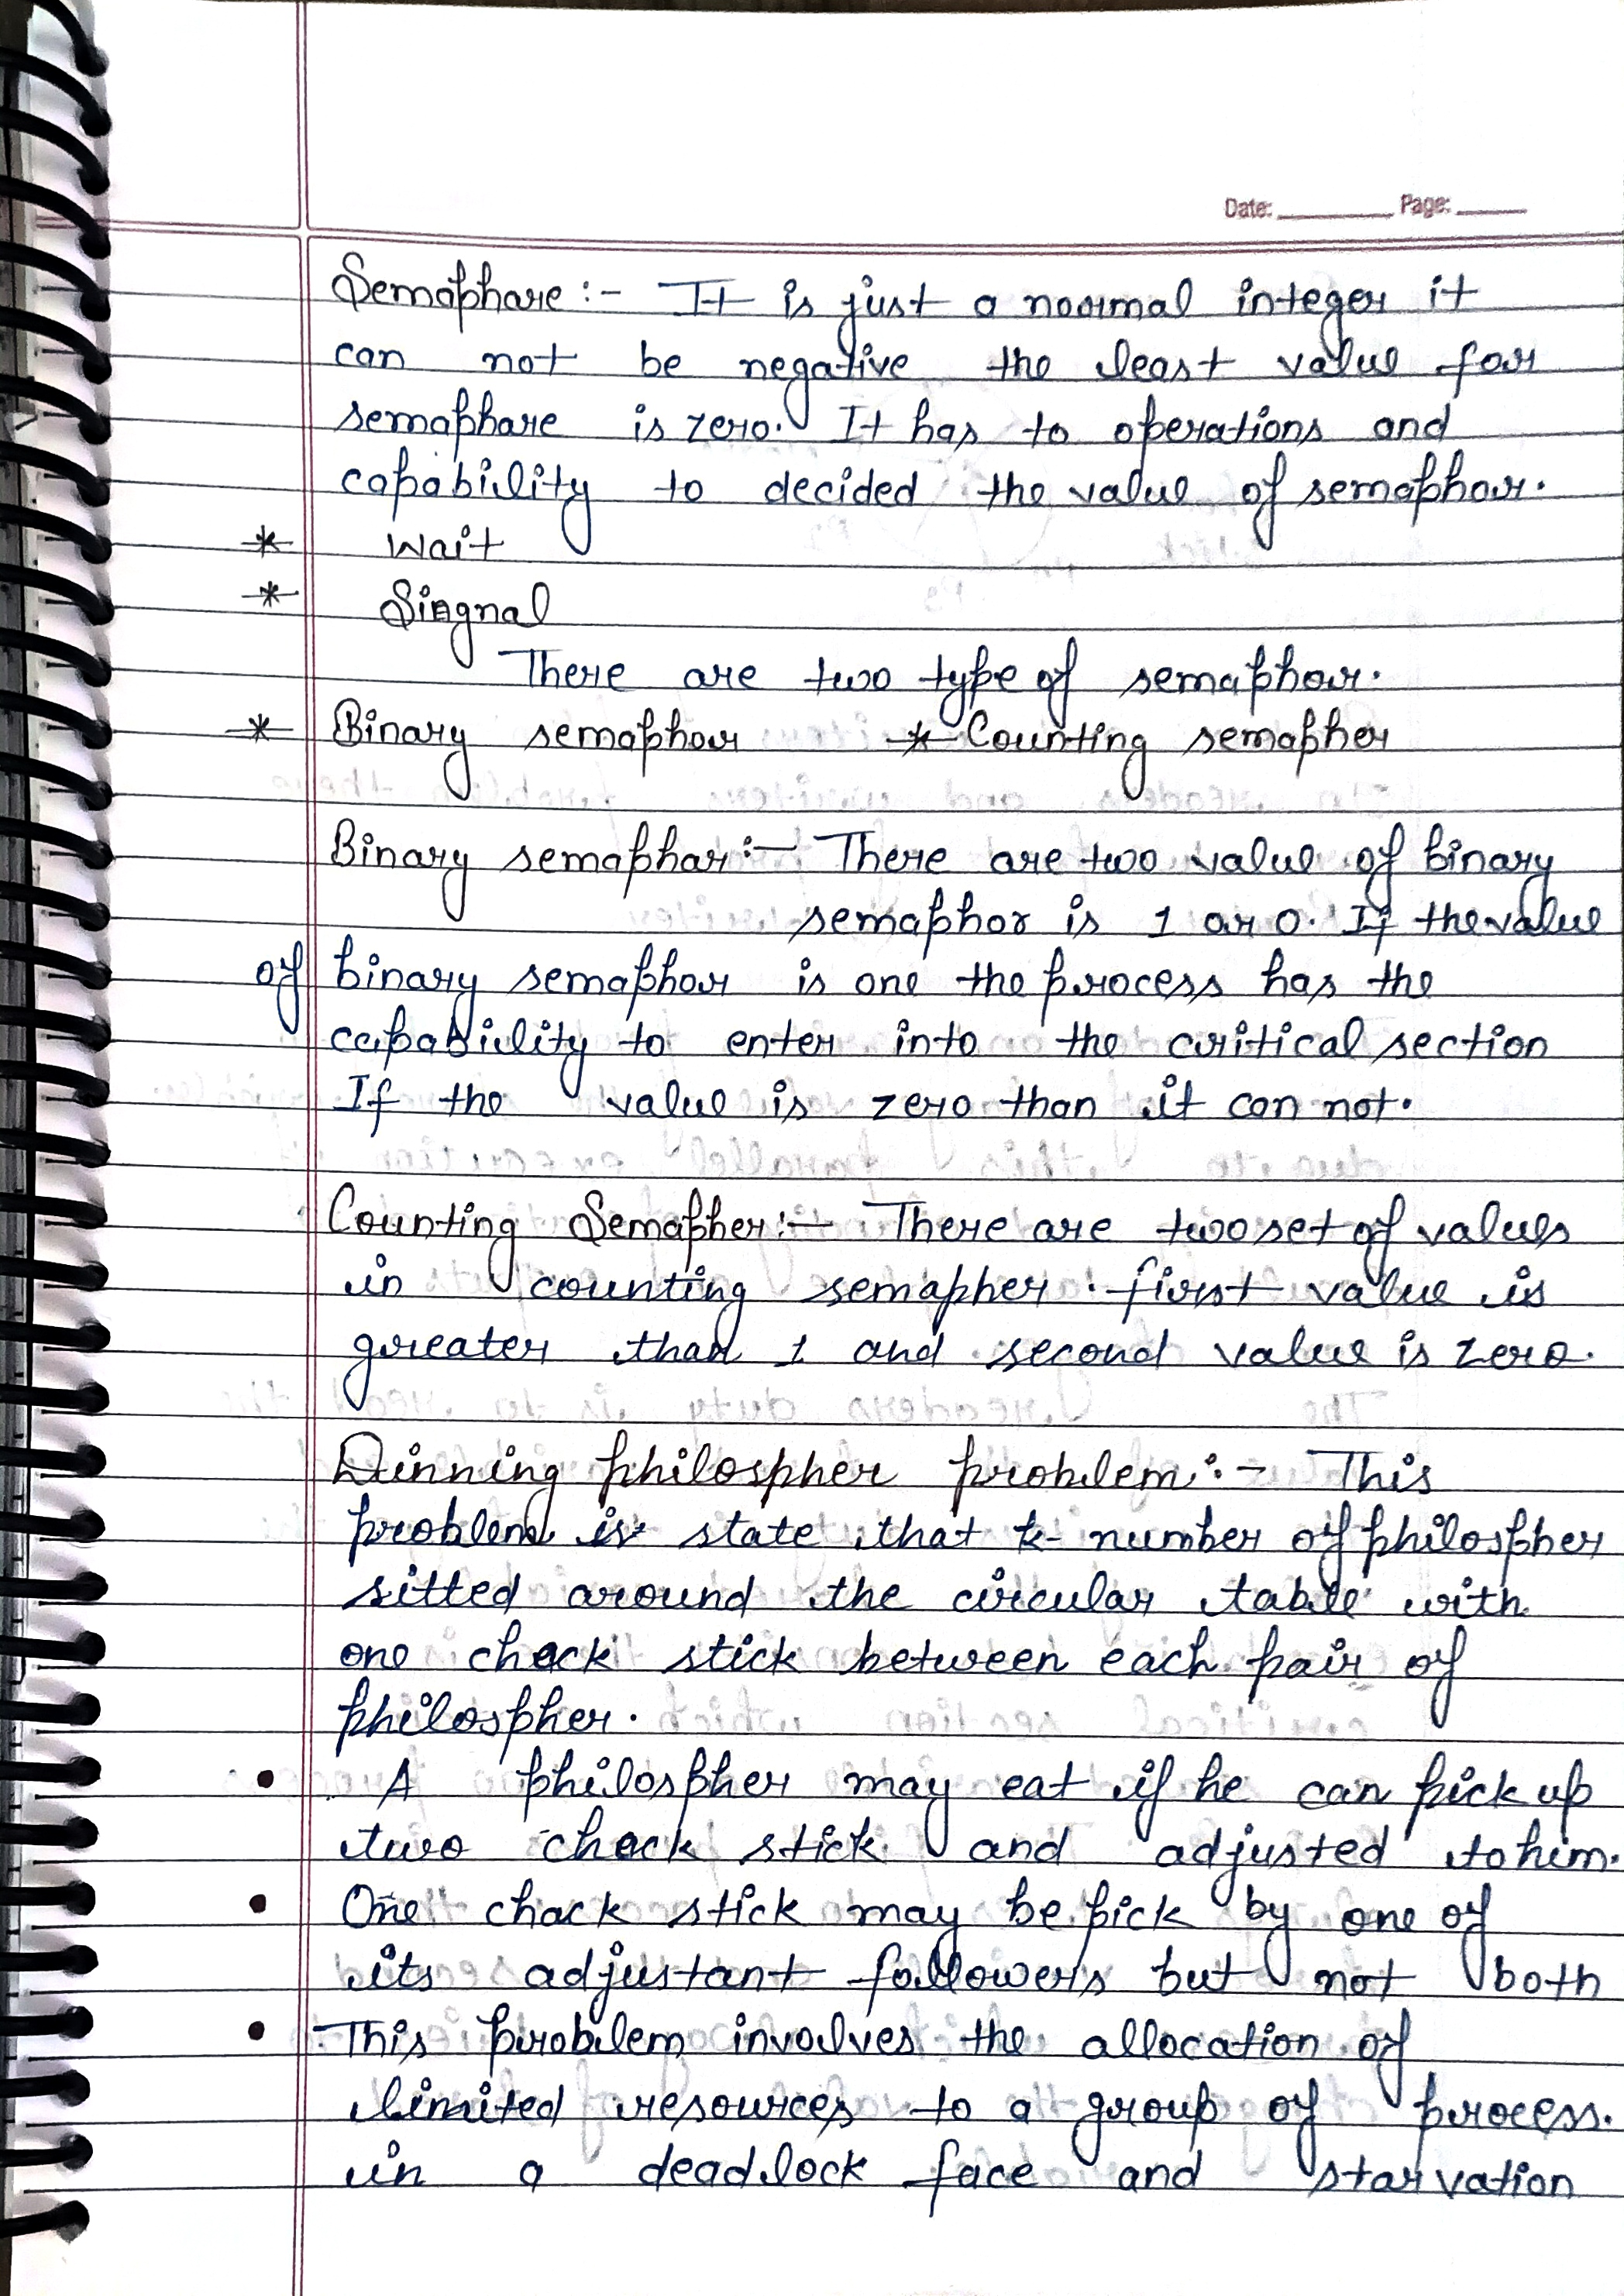 Date: ________ Page: _____
Semaphare :- It is just a noormal integer it
can not be negative the least value for
semaphare is zero. It has to operations and
capability to decided the value of semaphor.
* Wait
* Singnal
There are two type of semaphor.
* Binary semaphor * Counting semapher
Binary semaphar :- There are two value of binary
semaphor is 1 or 0. If the value
of binary semaphor is one the process has the
capability to enter into the critical section
If the value is zero than it can not.
Counting Semapher :- There are two set of values
in counting semapher. first value is
greater than 1 and second value is zero.
Dinning philospher problem :- This
problem is state that k- number of philospher
sitted around the circular table with
one chack stick between each pair of
philospher.
• A philospher may eat if he can pick up
two chack stick and adjusted to him.
• One chack stick may be pick by one of
its adjustant followers but not both
• This problem involves the allocation of
limited resources to a group of process.
in a deadlock face and starvation